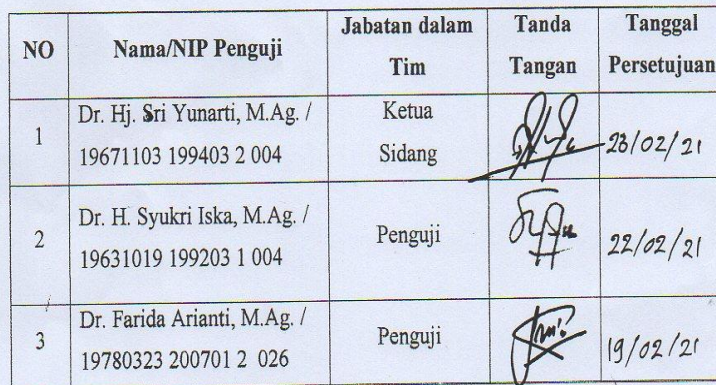 NO Nama/NIP Penguji Jabatan dalam Tim Tanda Tangan Tanggal Persetujuan
1 Dr. Hj. Sri Yunarti, M.Ag. / Ketua
19671103 199403 2 004 Sidang 23/02/21
2 Dr. H. Syukri Iska, M.Ag. /
19631019 199203 1 004 Penguji 22/02/21
3 Dr. Farida Arianti, M.Ag. /
19780323 200701 2 026 Penguji 19/02/21